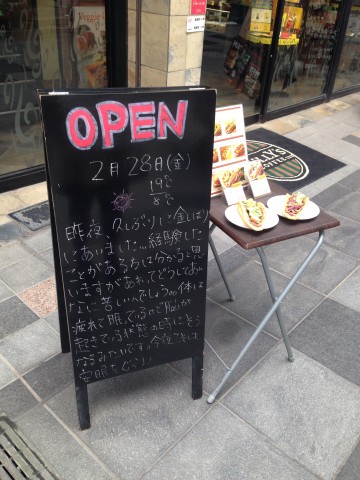 OPEN
2月28日(金)
19℃
8℃
昨夜、久しぶりに金しばり
にあいました…経験した
ことがある方は分かると思
いますがあれってどうしてあん
なに苦しいんでしょう…体は
疲れて眠ってるのに脳が
起きている状態の時にそう
なるみたいです。今夜こそは
安眠を
LLY'S
COFFEE